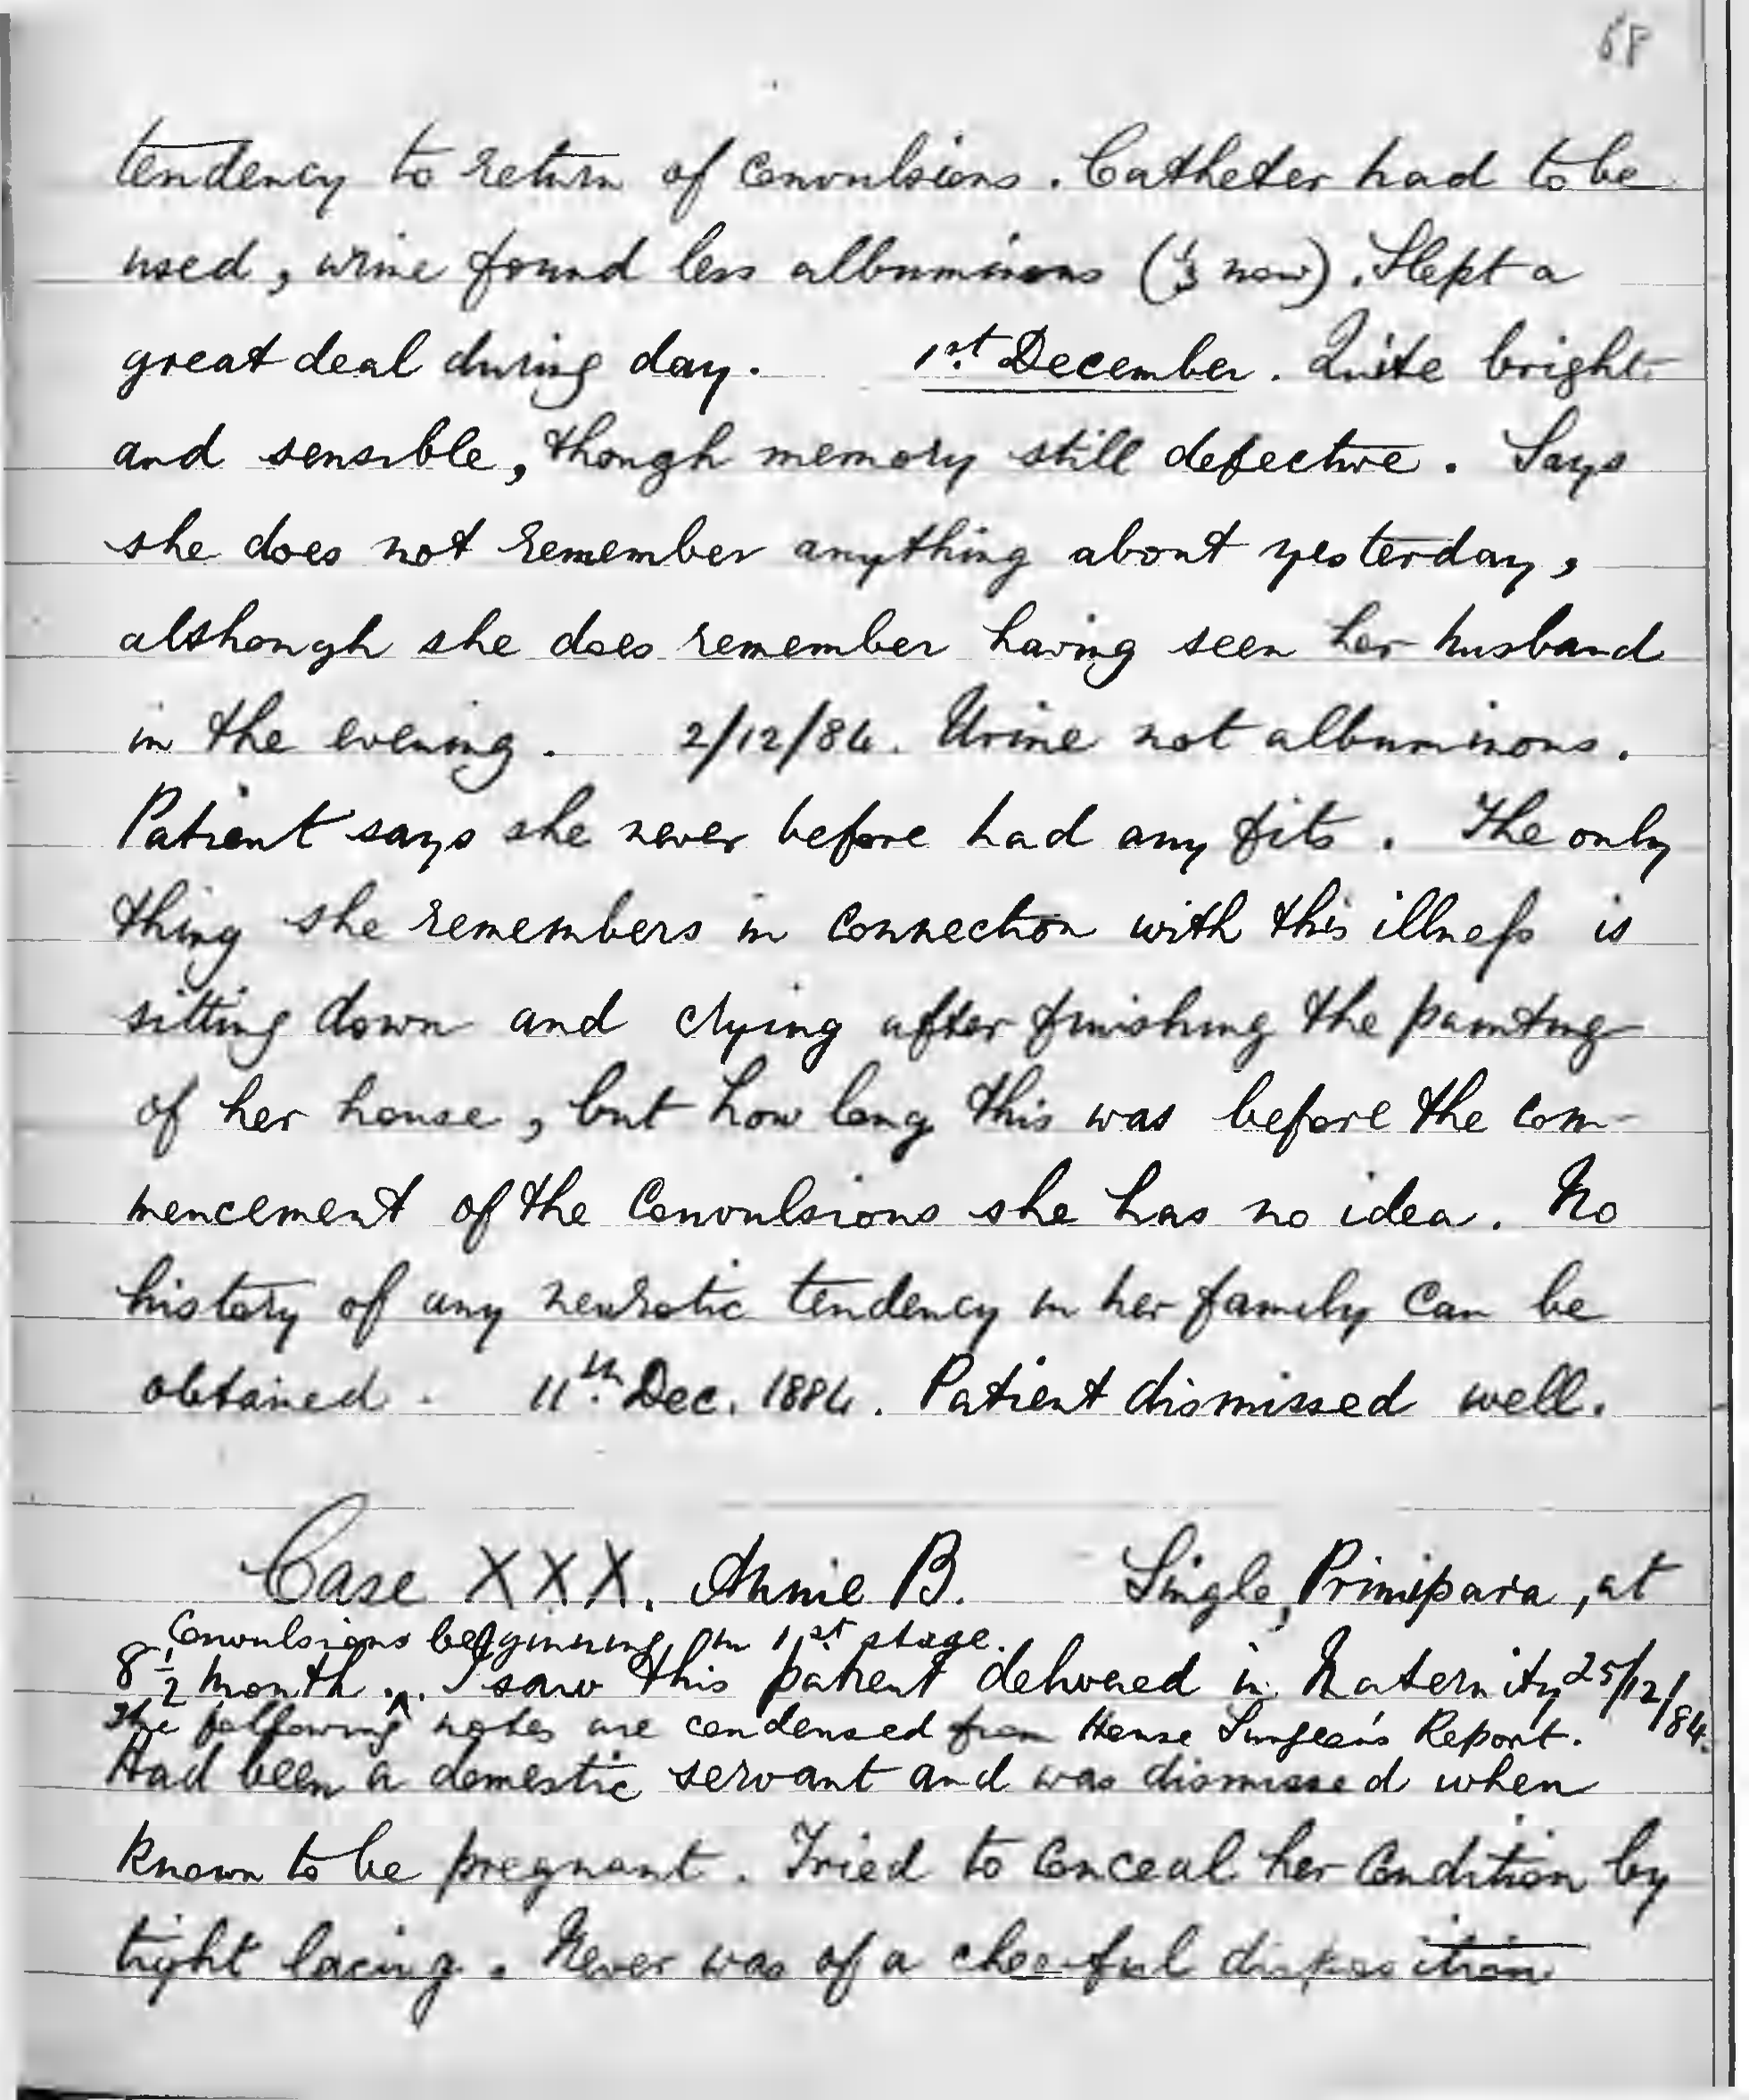 58
tendency to return of convulsions. Catheter had to be
used, urine found less albuminous (⅓ now). Slept a
great deal during day. 1st. December. Quite bright
and sensible, though memory still defective. Says
she does not remember anything about yesterday,
although she does remember having seen her husband
in the evening. 2/12/84. Urine not albuminous.
Patient says she never before had any fits. The only
thing she remembers in connection with this illness is
sitting down and crying after finishing the painting
of her house, but how long this was before the com-
mencement of the Convulsions she has no idea. No
history of any neurotic tendency in her family can be
obtained. 11th. Dec. 1884. Patient dismissed well.
Case XXX. Annie B. Single, Primipara, at
Convulsions beginning in 1st. stage.
8½ month. I saw this patient delivered in Maternity 25/12/84.
The following notes are condensed from House Surgeon's Report.
Had been a domestic servant and was dismissed when
known to be pregnant. Tried to conceal her condition by
tight lacing. Never was of a cheerful disposition